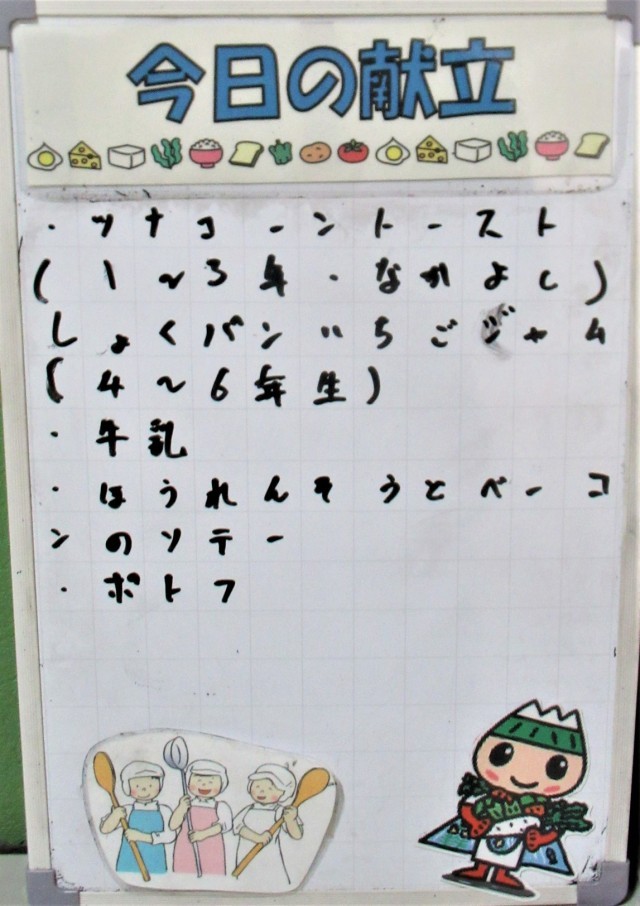 今日の献立
・ツナコーントースト
(1~3年・なかよし)
しょくパンいちごジャム
(4~6年生)
・牛乳
・ほうれんそうとベーコ
ンのソテー
・ポトフ